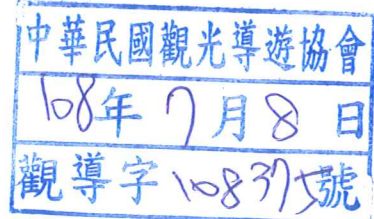 中華民國觀光導遊協會
108年7月8日
觀導字108375號